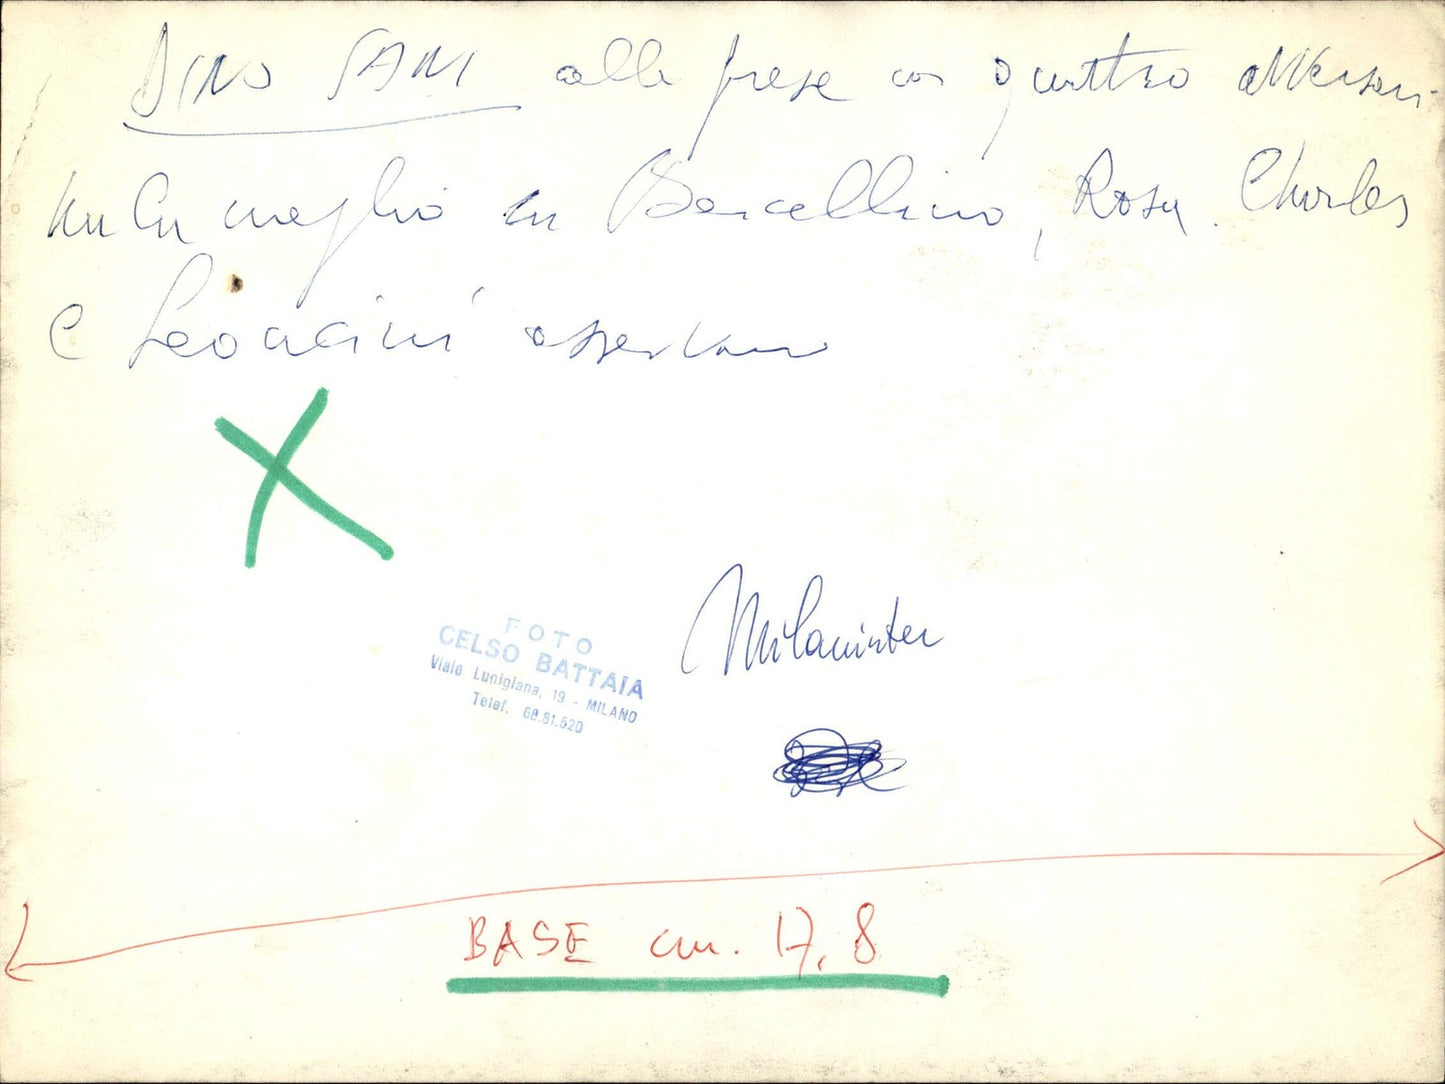 DINO SANI alle prese con quattro avversari.
meglio in Barcellino, Rosa. Charles
e Leoncini osservano
Milaninter
FOTO
CELSO BATTAIA
Viale Lunigiana, 19 - MILANO
Telef. 68.81.520
BASE cm. 17,8